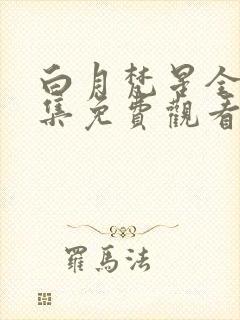 白月梵星全
集免費觀看
羅馬法